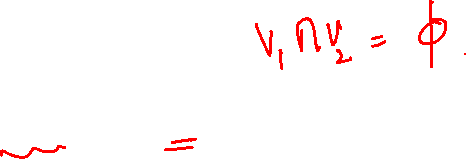 V₁ ∩ V₂ = ϕ.
=